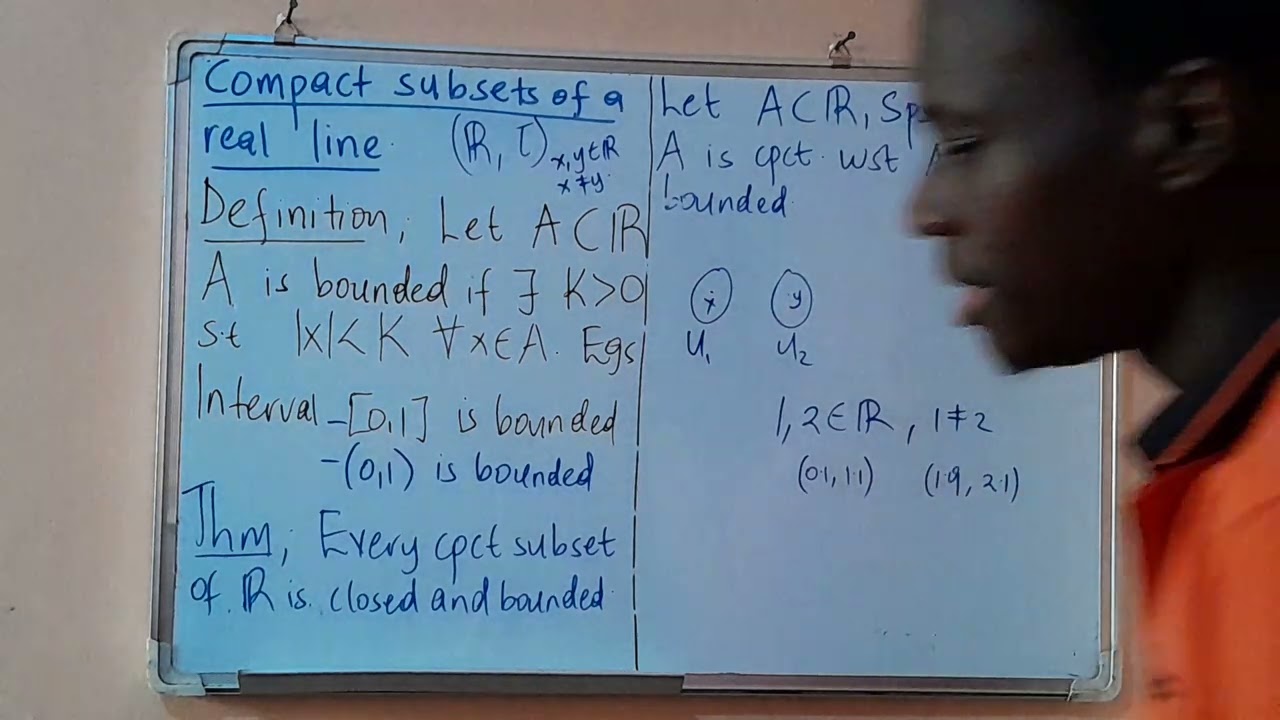 Compact subsets of a
real line. (ℝ, τ) x,y∈ℝ
x≠y.
Definition; Let A⊂ℝ
A is bounded if ∃ K>0
s.t |x|<K ∀x∈A. Egs
Interval -[0,1] is bounded
-(0,1) is bounded
Thm; Every cpct subset
of ℝ is closed and bounded
Let A⊂ℝ, Sps
A is cpct. wst
bounded
x y
U₁ U₂
1,2∈ℝ, 1≠2
(0.1, 1.1) (1.9, 2.1)